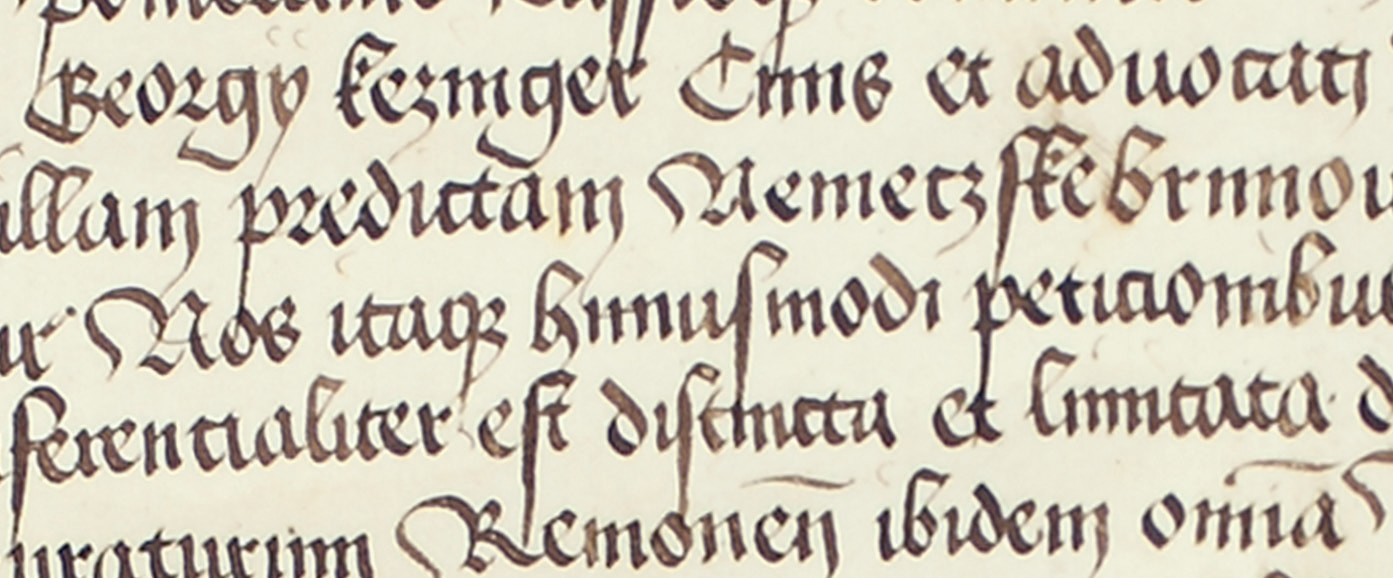 Georgÿ kezinger Ciuis et aduocati
illam predictam Nemetzskebrunnou
ur Nos itaqꝫ huiusmodi peticionibus
ferencialiter est distincta et limitata d
uraturum Remoneñ ibidem om̄ia